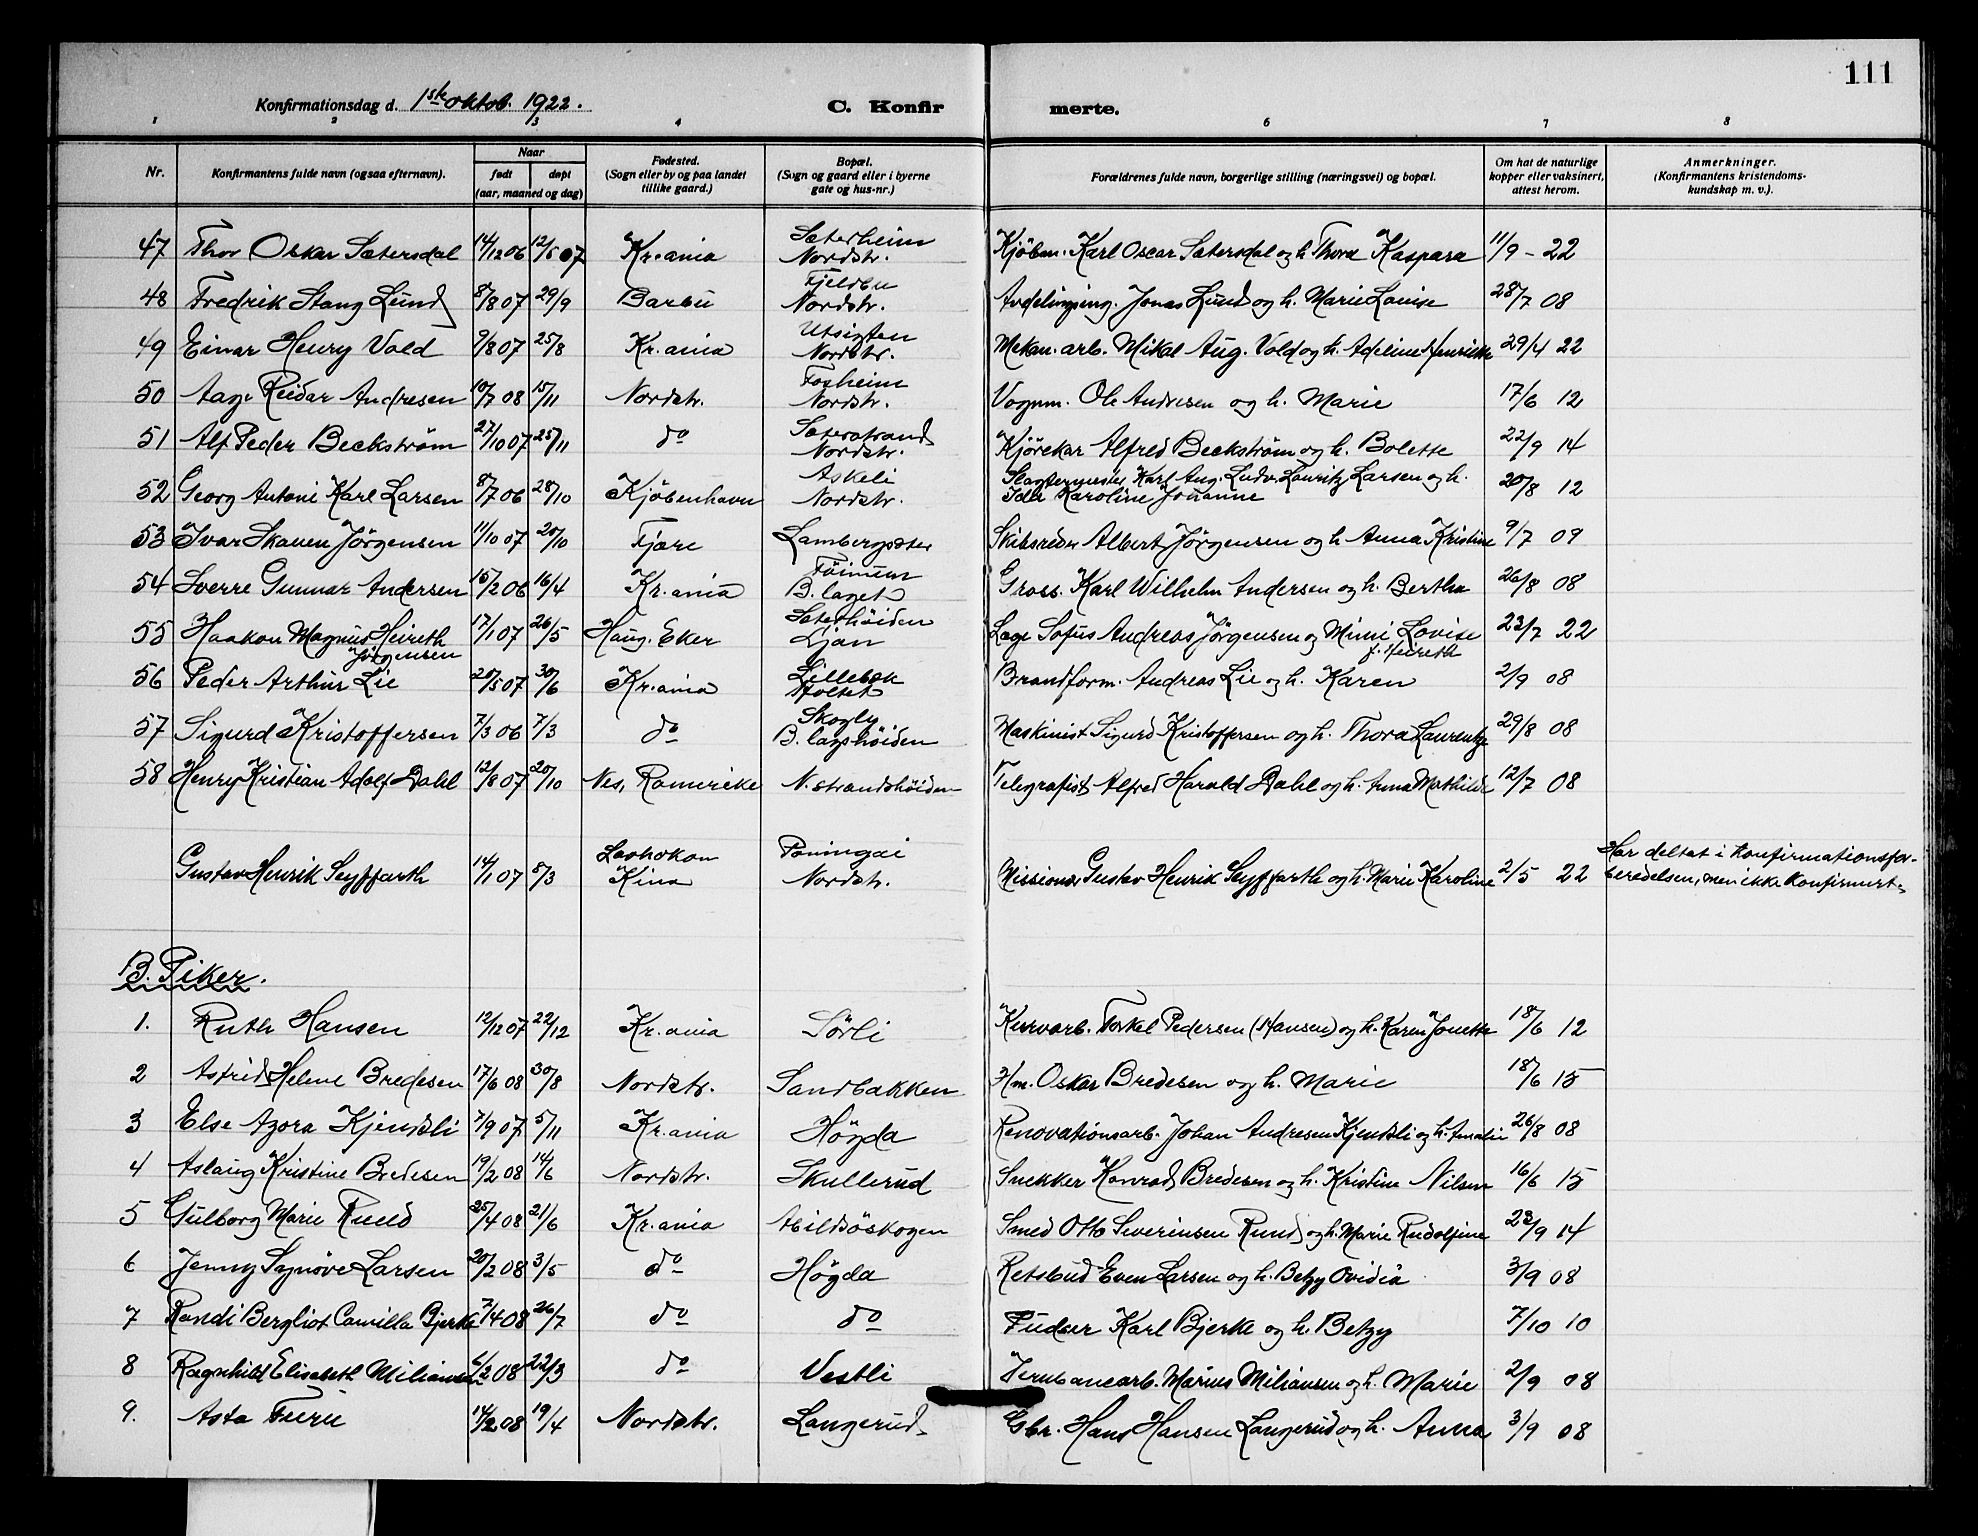 111
Konfirmationsdag d. 1ste oktob. 1922. C. Konfir merte.
1 2 3 4 6 7 8
Nr. Konfirmantens fulde navn (ogsaa efternavn). Naar født døpt (aar, maaned og dag) Fødested. (Sogn eller by og paa landet tillike gaard.) Bopæl. (Sogn og gaard eller i byerne gate og hus-nr.) Forældrenes fulde navn, borgerlige stilling (næringsvei) og bopæl. Om hat de naturlige kopper eller vaksinert, attest herom. Anmerkninger. (Konfirmantens kristendomskundskap m. v.).
47 Thor Oskar Sætersdal 14/12 06 12/5 07 Kr.ania Sæterheim Nordstr. Kjøbm. Karl Oscar Sætersdal og h. Thora Kaspara 11/9 - 22
48 Fredrik Stang Lund 8/8 07 29/9 Barbu Fjeldbu Nordstr. Avdelingsing. Jonas Lund og h. Marie Louise 28/7 08
49 Einar Henry Vold 9/8 07 25/8 Kr.ania Utsigten Nordstr. Mekan. arb. Mikal Aug. Vold og h. Adeline Henrikke 29/4 22
50 Aage Reidar Andresen 10/7 08 15/11 Nordstr. Foxheim Nordstr. Vognm. Ole Andresen og h. Marie 17/6 12
51 Alf Peder Beckstrøm 27/10 07 25/11 do Sæterstrand Nordstr. Kjørekar Alfred Beckstrøm og h. Bolette 22/9 14
52 Georg Antoni Karl Larsen 8/7 06 28/10 Kjøbenhavn Askeli Nordstr. Slagtermester Karl Aug. Ludv. Lauritz Larsen og h. Ida Karoline Johanne 20/8 12
53 Ivar Skauen Jörgensen 11/10 07 20/10 Fjære Lambergsæter Skibsreder Albert Jörgensen og h. Anna Kristine 9/7 09
54 Sverre Gunnar Andersen 15/2 06 16/4 Kr.ania B. laget Gross. Karl Wilhelm Andersen og h. Bertha 26/8 08
55 Haakon Magnus Heireth Jörgensen 17/1 07 26/5 Haug. Eker Sæterhöiden Ljan Læge Sofus Andreas Jörgensen og Mimi Lovise f. Heireth 23/7 22
56 Peder Arthur Lie 20/5 07 30/6 Kr.ania Lillebæk Brandform. Andreas Lie og h. Karen 2/9 08
57 Sigurd Kristoffersen 7/3 06 7/3 do Skogly B. lagshöiden Maskinist Sigurd Kristoffersen og h. Thora Laurentze 29/8 08
58 Henry Kristian Adolf Dahl 12/8 07 20/10 Nes, Romerike N.strandshöiden Telegrafist Alfred Harald Dahl og h. Anna Mathilde 12/7 08
Gustav Henrik Seyffarth 14/1 07 8/3 Laohokou Kina Nordstr. Missionær Gustav Henrik Seyffarth og h. Marie Karoline 2/5 22 Har deltat i konfirmationsforberedelsen, men ikke konfirmert.
B. Piker.
1. Ruth Hansen 12/12 07 22/12 Kr.ania Sörli Kurvarb. Torkel Pedersen (Hansen) og h. Karen Jonette 18/6 12
2 Astrid Helene Bredesen 17/6 08 30/8 Nordstr. Sandbakken Hm. Oskar Bredesen og h. Marie 18/6 15
3 Else Azora Kjendsli 7/9 07 5/11 Kr.ania Högda Renovationsarb. Johan Andresen Kjendsli og h. Amalie 26/8 08
4 Aslaug Kristine Bredesen 19/2 08 14/6 Nordstr. Skullerud Snekker Konrad Bredesen og h. Kristine Nilsen 16/6 15
5 Gulborg Marie Ruud 25/4 08 21/6 Kr.ania Abildsöskogen Smed Otto Severinsen Ruud og h. Marie Rudolfine 23/9 14
6 Jenny Synöve Larsen 20/2 08 3/5 do Högda Retsbud Even Larsen og h. Betzy Ovidia 3/9 08
7 Randi Bergliot Camilla Bjerke 7/4 08 26/7 do do Pudser Karl Bjerke og h. Betzy 7/10 10
8 Ragnhild Elisabeth Miliansen 6/2 08 22/3 do Vestli Jernbanearb. Marius Miliansen og h. Marie 2/9 08
9. Asta Furu 14/2 08 19/4 Nordstr. Langerud Gbr. Hans Hansen Langerud og h. Anna 3/9 08